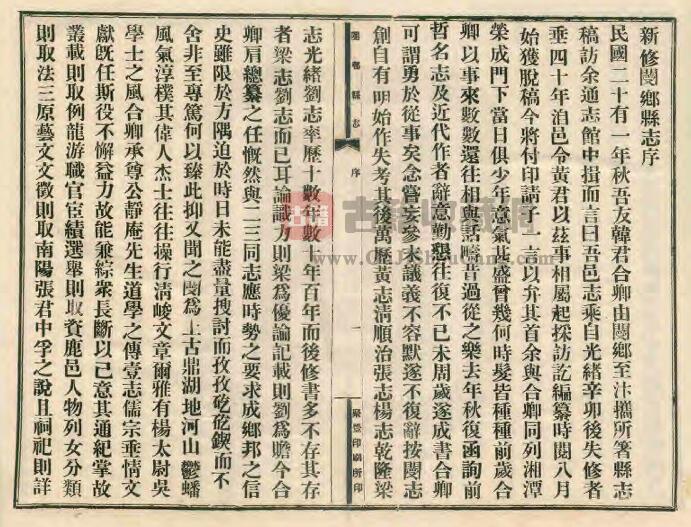 新修閿鄉縣志序
民國二十有一年秋吾友韓君合卿由閿鄉至汴攜所著縣志
稿訪余通志館中揖而言曰吾邑志乘自光緒辛卯後失修者
垂四十年洎邑令黃君以茲事相屬起採訪訖編纂時閱八月
始獲脫稿今將付印請子一言以弁其首余與合卿同列湘潭
榮成門下當日俱少年意氣甚盛曾幾何時髮皆種種前歲合
卿以事來數數還往相與話疇昔過從之樂去年秋復函詢前
哲名志及近代作者辭意勤懇往復不已未周歲遂成書合卿
可謂勇於從事矣念嘗妄參末議義不容默遂不復辭按閿志
創自有明始作失考其後萬歷黃志清順治張志楊志乾隆梁
閿鄉縣志
序
一
聚星印刷所印
志光緒劉志率歷十數年數十年百年而後修書多不存其存
者梁志劉志而已耳論識力則梁爲優論記載則劉爲贍今合
卿肩總纂之任慨然與二三同志應時勢之要求成鄉邦之信
史雖限於方隅迫於時日未能盡量搜討而孜孜矻矻鍥而不
舍非至專篤何以臻此抑又聞之閿爲上古鼎湖地河山鬱蟠
風氣淳樸其偉人杰士往往操行清峻文章爾雅有楊太尉吳
學士之風合卿承尊公靜庵先生道學之傳壹志儒宗垂情文
獻旣任斯役不懈益力故能兼綜衆長斷以己意其通紀掌故
叢載則取例龍游職官宦績選舉則取資鹿邑人物列女分類
則取法三原藝文文徵則取南陽張君中孚之說且祠祀則詳
古籍收藏網